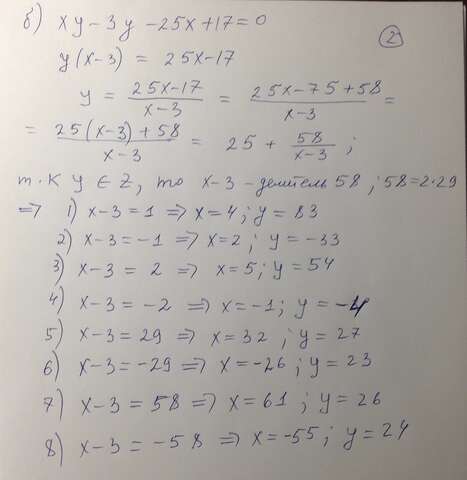 б) xy - 3y - 25x + 17 = 0
②
y(x-3) = 25x-17
y = \frac{25x-17}{x-3} = \frac{25x-75+58}{x-3} =
= \frac{25(x-3)+58}{x-3} = 25 + \frac{58}{x-3} ;
т.к y ∈ Z, то x-3 - делитель 58 ; 58=2·29
=> 1) x-3 = 1 => x=4; y = 83
2) x-3 = -1 => x=2; y = -33
3) x-3 = 2 => x=5; y = 54
4) x-3 = -2 => x=-1; y = -4
5) x-3 = 29 => x=32; y = 27
6) x-3 = -29 => x=-26; y = 23
7) x-3 = 58 => x=61; y = 26
8) x-3 = -58 => x=-55; y = 24